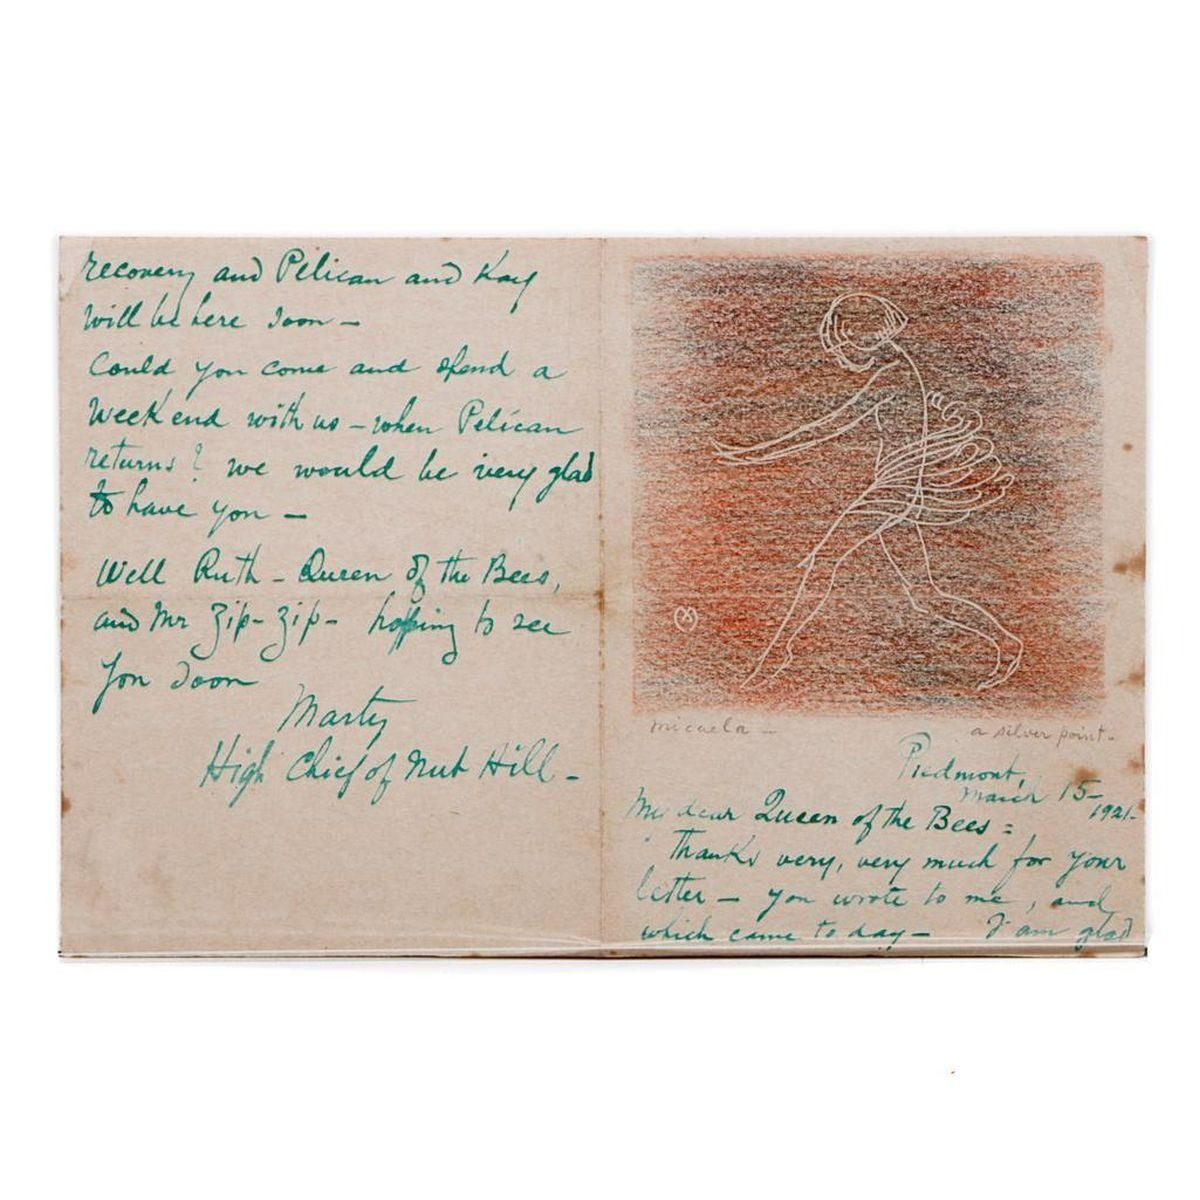 micaela –
a silver point –
Piedmont,
March 15 –
1921 –
My dear Queen of the Bees =
Thanks very, very much for your
letter – you wrote to me, and
which came to day – I am glad
recovery and Pelican and Kay
will be here soon –
Could you come and spend a
week end with us – when Pelican
returns? we would be very glad
to have you –
Well Ruth – Queen of the Bees,
and Mr Zip-Zip – hopping to see
you soon
Marty
High Chief of Nut Hill –